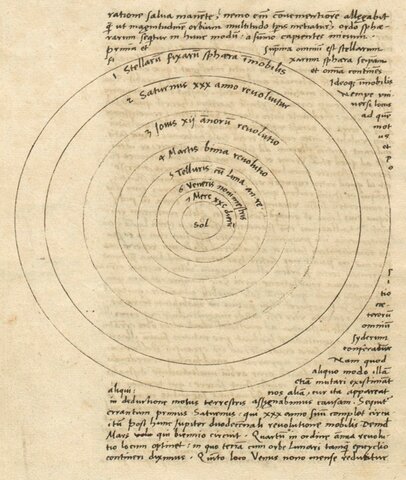 ratione salva manete, nemo em̄ convenientiorē allegabit
q̄ ut magnitudinē orbium multitudo tp̄is metiatur, ordo sphæ-
rarum sequitur in hunc modū: a sūmo capientes initium.
prima et supīma omniū est stellarum
fi xarum sphæra seipam
et omīa continēs
Ideoq̄ imobilis
Nempe vni-
versi locus
ad quē
mot
us
et
p
1 Stellarū fixarū sphæra īmobilis
2 Saturnus xxx anno revoluitur
3 Iovis xij añorū revolutio
4 Martis bīma revolutio
5 Telluris cū Luna an. re.
6 Veneris nonimestris
7 Merc xxc dierū
Sol
tio
cæ-
terorū
omniū
syderum
conferat
Nam quod
aliquo modo illā
etiā mutari existimāt
aliqui: nos aliā, cur ita appareat
in deductione motus terrestris assignabimus causam. Sequit
errantium primus Saturnus: qui xxx anno suū complet circu
itū Post hunc Iupiter duodecennali revolutione mobilis Deinde
Mars qui biennio circuit. Quartū in ordine annua revolu
tio locum optinet: in quo terrā cum orbe Lunari tanq̄ epicyclio
contineri diximus. Quīto loco Venus nono mense reducitur